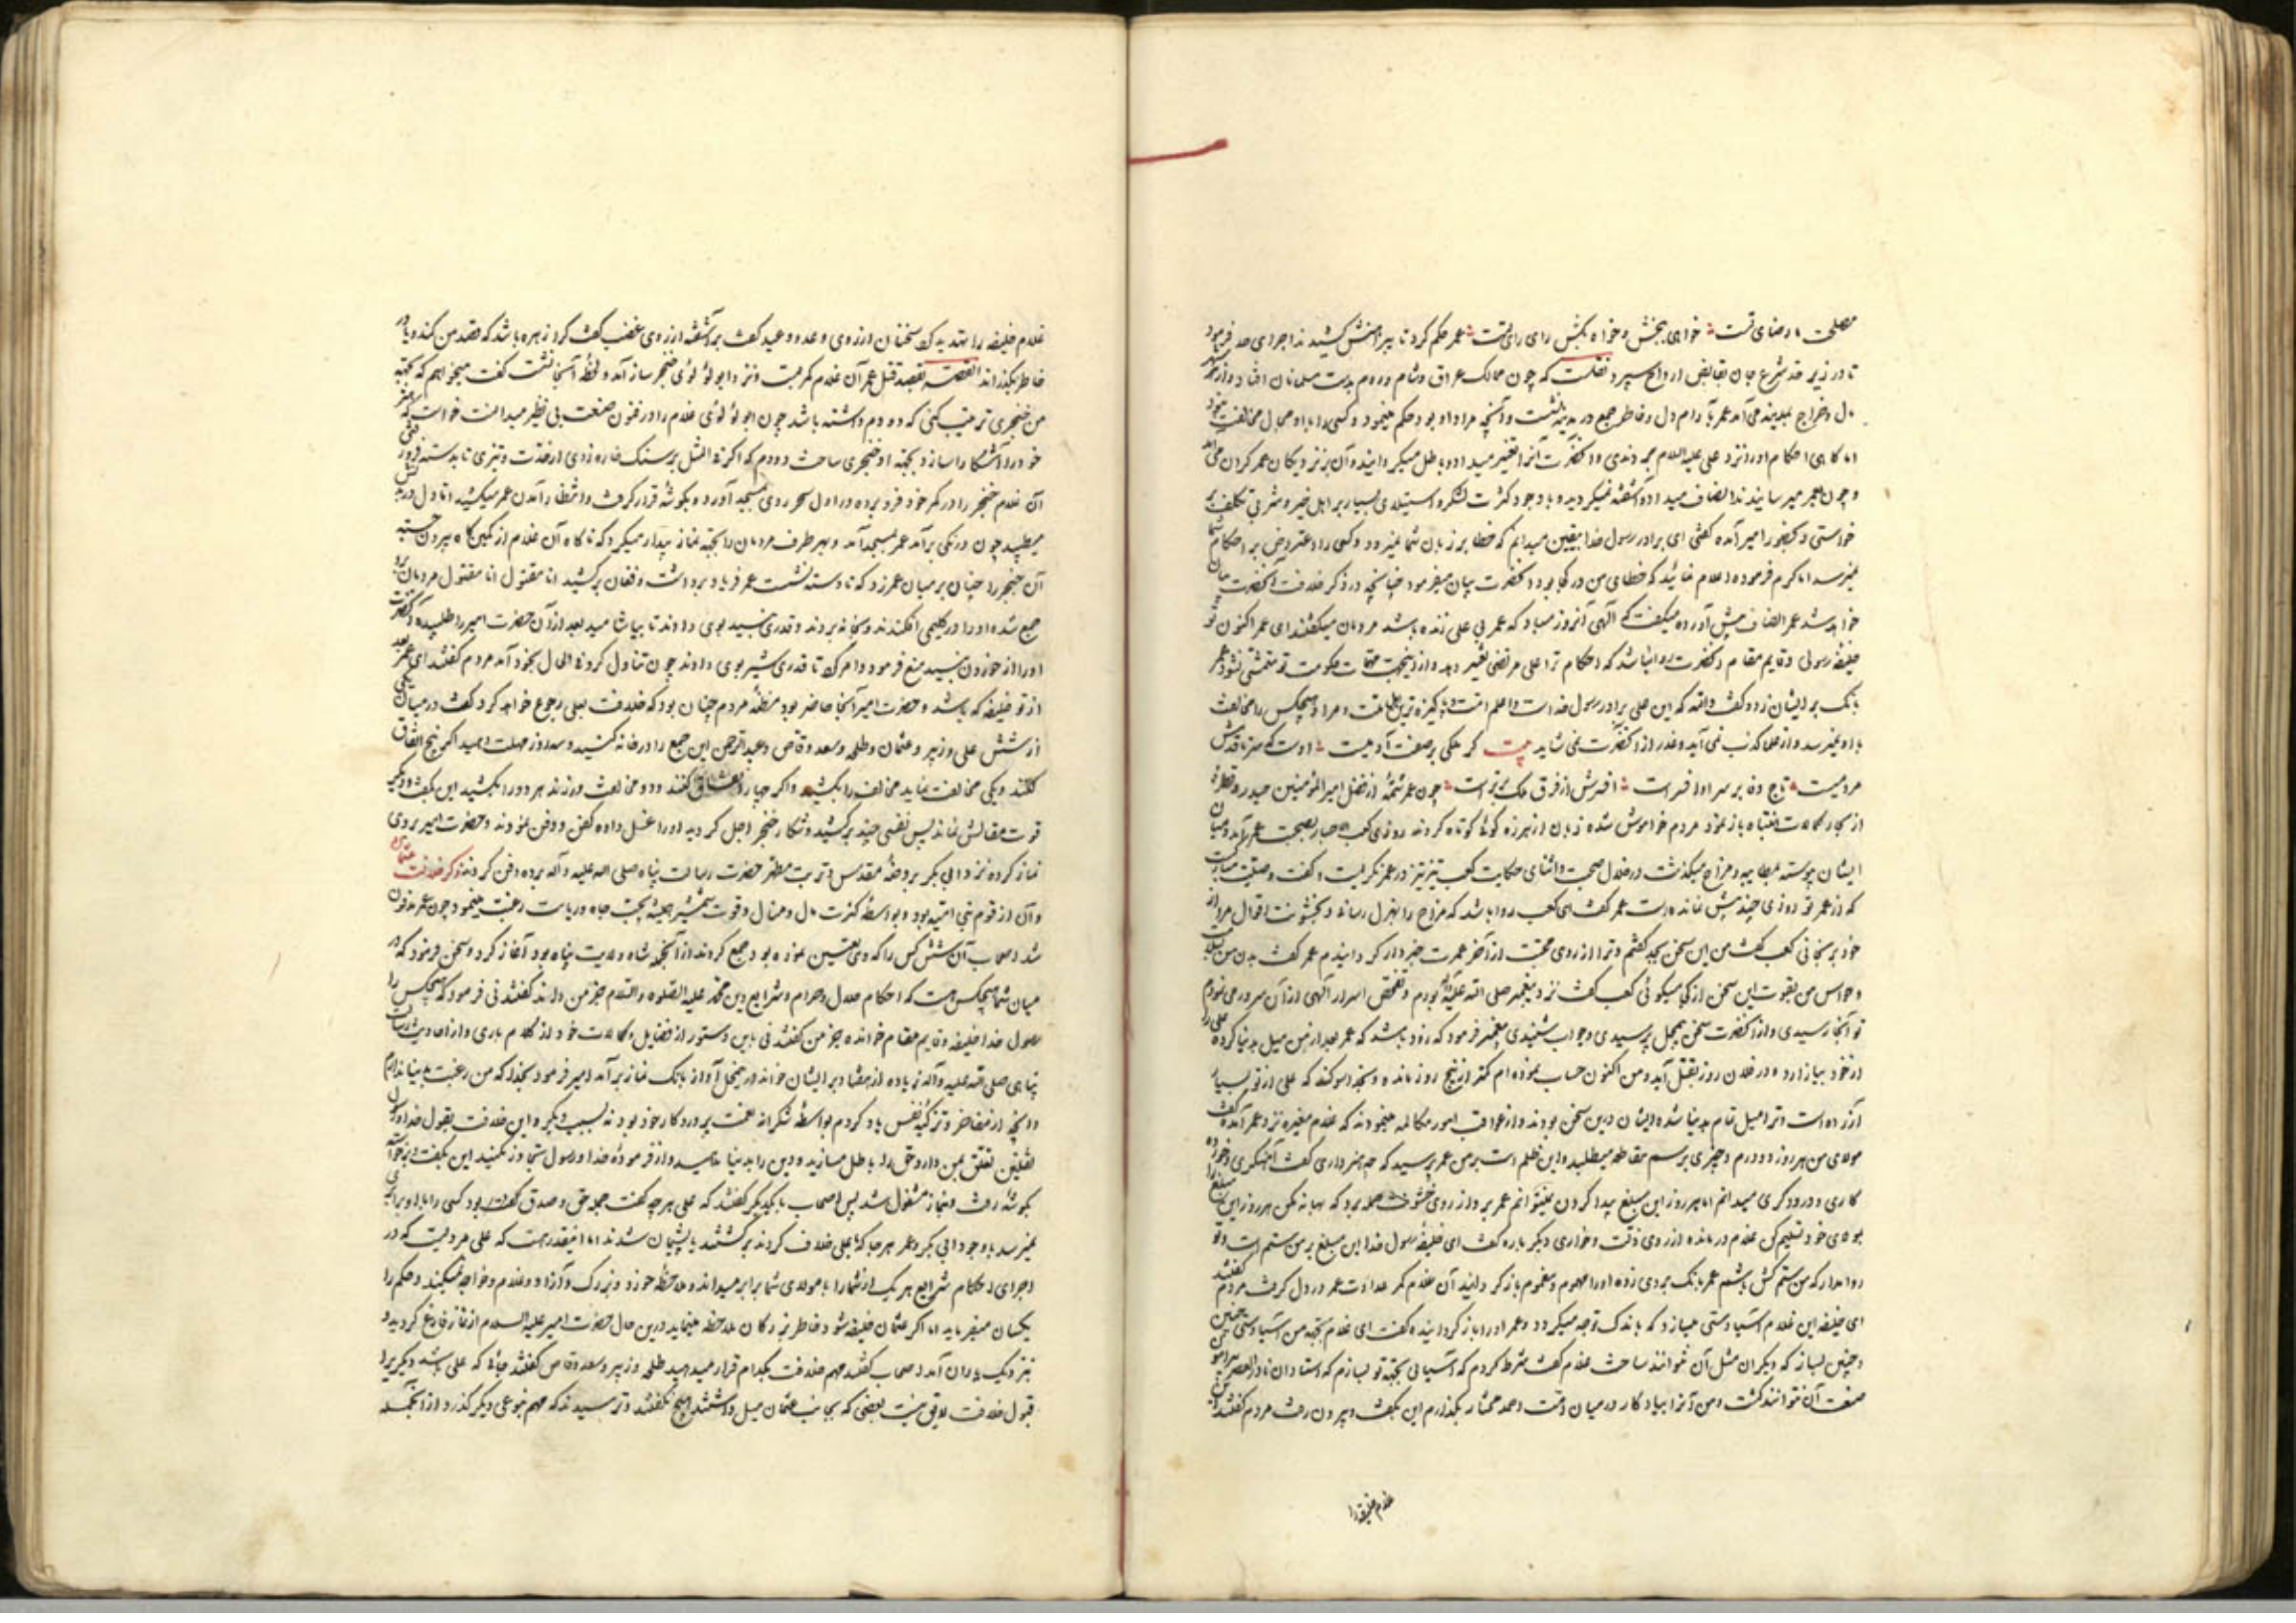 مصلحت ما رضای تست خواهی ببخش و خواه بکش رای رای تست عمر حکم کرد تا پیراهنش کشیدند اجرای حد فرمود
تا در زیر حد شرع جان بقابض ارواح سپرد نقلست که چون ممالک عراق و شام و روم بدست مسلمانان افتاد و از هر
مال و خراج بمدینه می آمد عمر با رام دل و خاطر جمع در مدینه نشست و آنچه مراد او بود حکم مینمود و کسی را با او مجال مخالفت نبود
اما گاهی احکام او را نزد علی علیه السلام می بردندی و آنحضرت آنرا تغییر میداد و باطل میگردانید و آن بر نزدیکان عمر گران می آمد
و چون بعمر میرسانیدند انصاف میداد و آشفته نمیگردید و با وجود کثرت لشکر و استیلای بسیار بر اهل خیر و شر بی تکلف بر
خواستی و بحضور امیر آمده گفتی ای برادر رسول خدا بیقین میدانم که خطا بر زبان شما نمیرود و کسی را اعتراض بر احکام شما
نمیرسد اما کرم فرموده اعلام نمائید که خطای من در کجا بود آنحضرت بیان میفرمود چنانچه در ذکر خلافت آنحضرت بیان
خواهد شد عمر انصاف پیش آورده میگفت که الهی آنروز مباد که عمر بی علی زنده باشد مردمان میگفتند ای عمر اکنون تو
خلیفه رسولی و قایم مقام آنحضرت روا نباشد که احکام ترا علی مرتضی تغییر دهد و از اینجهت مهمات حکومت تو متمشی نشود عمر
بانگ بر ایشان زد و گفت والله که این علی برادر رسول خداست و اعلم امت و پاکیزه ترین طایفه و مرا و هیچکس را مخالفت
با او نمیرسد و از علی کذب نمی آید و غدر از آنحضرت نمی شاید بیت گر ملکی بر صفت آدمیست اوست که سر تا قدمش
مردمیست تاج ده بر سر او افسر است افسرش از فرق ملک برتر است چون عمر شمه از فضل امیرالمؤمنین حیدر و قطره
از بحار کمالات انتباه باز نمود مردم خواموش شده زبان از هرزه گوئی کوتاه کردند روزی کعب احبار بصحبت عمر آمد و میان
ایشان پیوسته بمطایبه و مزاح میگذشت در خلال صحبت و اثنای حکایت کعب تیز تیز در عمر نگریست و گفت وصیت
که از عمر تو روزی چند بیش نمانده است عمر گفت ای کعب روا باشد که مزاح را بهزل رسانی و بخشونت اقوال مرا از
خود برنجانی کعب گفت من این سخن بجد گفتم و ترا از روی محبت از آخر عمرت خبردار گردانیدم عمر گفت بدن من
و حواس من بقوت این سخن از کجا میگوئی کعب گفت نزد پیغمبر صلی الله علیه و آله بودم و تفحص اسرار الهی از آن سرور می نمودم
تو آنجا رسیدی و از آنحضرت سخن پرسیدی و جواب شنیدی پیغمبر فرمود که زود باشد که عمر بعد از من میل بدنیا کرده علی را
از خود بیازارد و در فلان روز بقتل آید و من اکنون حساب نموده ام کمتر از پنج روز مانده و بخدا سوگند که علی از تو بسیار
آزرده است و ترا میل تمام بدنیا شده ایشان درین سخن بودند و از عواقب امور مکالمه مینمودند که غلام مغیره نزد عمر آمده گفت
مولای من هر روز دو درم و چیزی برسم مقاطعه میطلبد و این ظلم است بر من عمر پرسید که چه هنر داری گفت آهنگری و خورده
کاری و درودگری میدانم اما هر روز این مبلغ پیدا کردن نمیتوانم عمر بر او از روی خشونت حمله برد که بهانه مکن هر روز این مبلغ را
بمولای خود تسلیم کن غلام درمانده از روی ذلت و خواری دیگر باره گفت ای خلیفه رسول خدا این مبلغ بر من ستم است و تو
روا مدار که من ستم کش باشم عمر بانگ بر وی زده او را مهموم و مغموم بازگردانید آن غلام کمر عداوت عمر در دل گرفت مردم گفتند
ای خلیفه این غلام آسیا دستی میسازد که باندک توجه میگردد و عمر او را باز گردانیده گفت ای غلام بجهة من آسیا دستی چنین
و چنین بساز که دیگران مثل آن نتوانند ساخت غلام گفت شرط کردم که آسیائی بجهة تو بسازم که استادان نادرالعصر پیرامون
صنعت آن نتوانند گشت و من آنرا بیادگار در میان امت محمد مختار بگذارم این بگفت و بیرون رفت مردم گفتند
غلام خلیفه را
غلام خلیفه را تهدید کرد سخنان از روی وعد و وعید گفت عمر برآشفته از روی غضب گفت کرا زهره باشد که قصد من کند و یا در
خاطر بگذراند القصه بقصد قتل عمر آن غلام کمر بست و نزد ابو لؤلؤی خنجرساز آمد و لحظه آنجا نشست گفت میخواهم که بجهة
من خنجری ترتیب کنی که دو دم داشته باشد چون ابو لؤلؤی غلام را در فنون صنعت بی نظیر میدانست خواست که هنر
خود را آشکارا سازد بجهة او خنجری ساخت دو دم که اگر فی المثل بر سنک خاره زدی از حدت و تیزی تا بدسته فرو رفتی
آن غلام خنجر را در کمر خود فرو برده در اول سحر روی بمسجد آورده بگوشه قرار گرفت و انتظار آمدن عمر میکشید اما دل در برش
میطپید چون درنگی برآمد عمر بمسجد آمد و بهر طرف مردمان را بجهة نماز بیدار میکرد که ناگاه آن غلام از کمین گاه بیرون جسته
آن خنجر را چنان بر میان عمر زد که تا دسته نشست عمر فریاد برداشت و فغان برکشید انا مقتول انا مقتول مردمان
جمع شده او را در گلیمی افکندند و بخانه بردند و قدری نبید بوی دادند تا بیاشامید بعد از آن حضرت امیر را طلبیده آنحضرت
او را از خوردن نبید منع فرمود و امر کرد تا قدری شیر بوی دادند چون تناول کرد فی الحال بخود آمد مردم گفتند ای عمر بعد
از تو خلیفه که باشد و حضرت امیر آنجا حاضر بود مظنه مردم چنان بود که خلافت بعلی رجوع خواهد کرد گفت در میان یکی
از شش علی و زبیر و عثمان و طلحه و سعد وقاص و عبدالرحمن این جمع را در خانه کنید و سه روز مهلت دهید اگر پنج اتفاق
کنند و یکی مخالفت نماید مخالف را بکشید و اگر چهار اتفاق کنند و دو مخالفت ورزند هر دو را بکشید این بگفت و دیگر
قوت مقالش نماند پس نفسی چند برکشید و شکار خنجر اجل گردید او را غسل داده کفن و دفن نمودند و حضرت امیر بر وی
نماز کرده نزد ابی بکر بروضه مقدس و تربت مطهر حضرت رسالت پناه صلی الله علیه و آله برده دفن کردند ذکر خلافت عثمان
و آن از قوم بنی امیه بود و بواسطه کثرت مال و منال و قوت شمشیر همیشه بجهة جاه و ریاست رغبت مینمود چون عمر مدفون
شد اصحاب آن شش کس را که وی تعیین نموده بود جمع کردند از آنجمله شاه ولایت پناه بود آغاز کرد و سخن فرمود که در
میان شما هیچکس هست که احکام حلال و حرام و شرایع دین محمد علیه الصلوة والسلام جز من داند گفتند نی فرمود که هیچکس را
رسول خدا خلیفه و قایم مقام خوانده جز من گفتند نی باین دستور از فضایل و کمالات خود از کلام باری و از احادیث رسالت
پناهی صلی الله علیه و آله زیاده از هفتاد بر ایشان خواند در همین محل آواز بانگ نماز برآمد امیر فرمود بخدا که من رغبت بدنیا ندارم
و آنچه از مفاخر و تزکیه نفس یاد کردم بواسطه شکرانه نعمت پروردگار خود بود نه بسبب دیگر و این خلافت بقول خدا و رسول
ثقلین تعلق بمن دارد حق را باطل مسازید و دین را بدنیا مدهید و از فرموده خدا و رسول تجاوز مکنید این بگفت و برخاست
بگوشه رفت و بنماز مشغول شد پس اصحاب با یکدیگر گفتند که علی هرچه گفت جمله حق و صدق گفت بود کسی را با او برابری
نمیرسد با وجود ابی بکر و عمر هر جا که با علی خلاف کردند برگشتند یا پشیمان شدند اما اینقدر هست که علی مردیست که در
اجرای احکام شرایع هر یک از شما را با مولای شما برابر میداند و ملاحظه خورد و بزرگ و آزاد و غلام و خواجه نمیکند و حکم را
یکسان میفرماید اما اگر عثمان خلیفه شود خاطر بزرگان ملاحظه مینماید درین حال حضرت امیر علیه السلام از نماز فارغ گردید و
نزدیک یاران آمد اصحاب گفتند مهم خلافت بکدام قرار میدهید طلحه و زبیر و سعد وقاص گفتند جائی که علی باشد دیگریرا
قبول خلافت لایق نیست بعضی که بجانب عثمان میل داشتند هیچ نگفتند و ترسیدند که مهم بنوعی دیگر گذرد از آنجمله